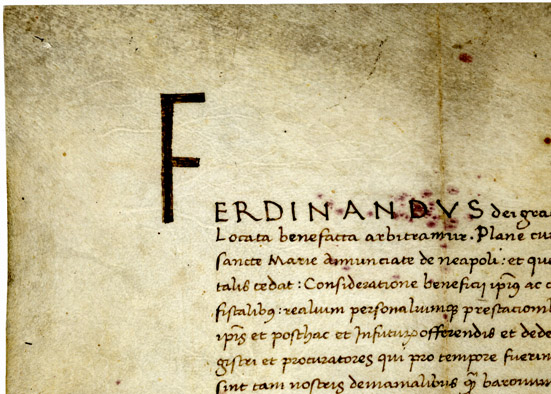 FERDINANDVS dei gra
Locata benefacta arbitramur. Plane cu
sancte Marie Annunciate de neapoli: et que
talis cedat: Consideratione beneficij ipius ac
fiscalibus: realium personaliumque prestacioni
ipis et posthac et Infuturum offerendis et dede
gistri et procuratores qui pro tempore fuerin
sint tam nostris demanialibus quam baronum